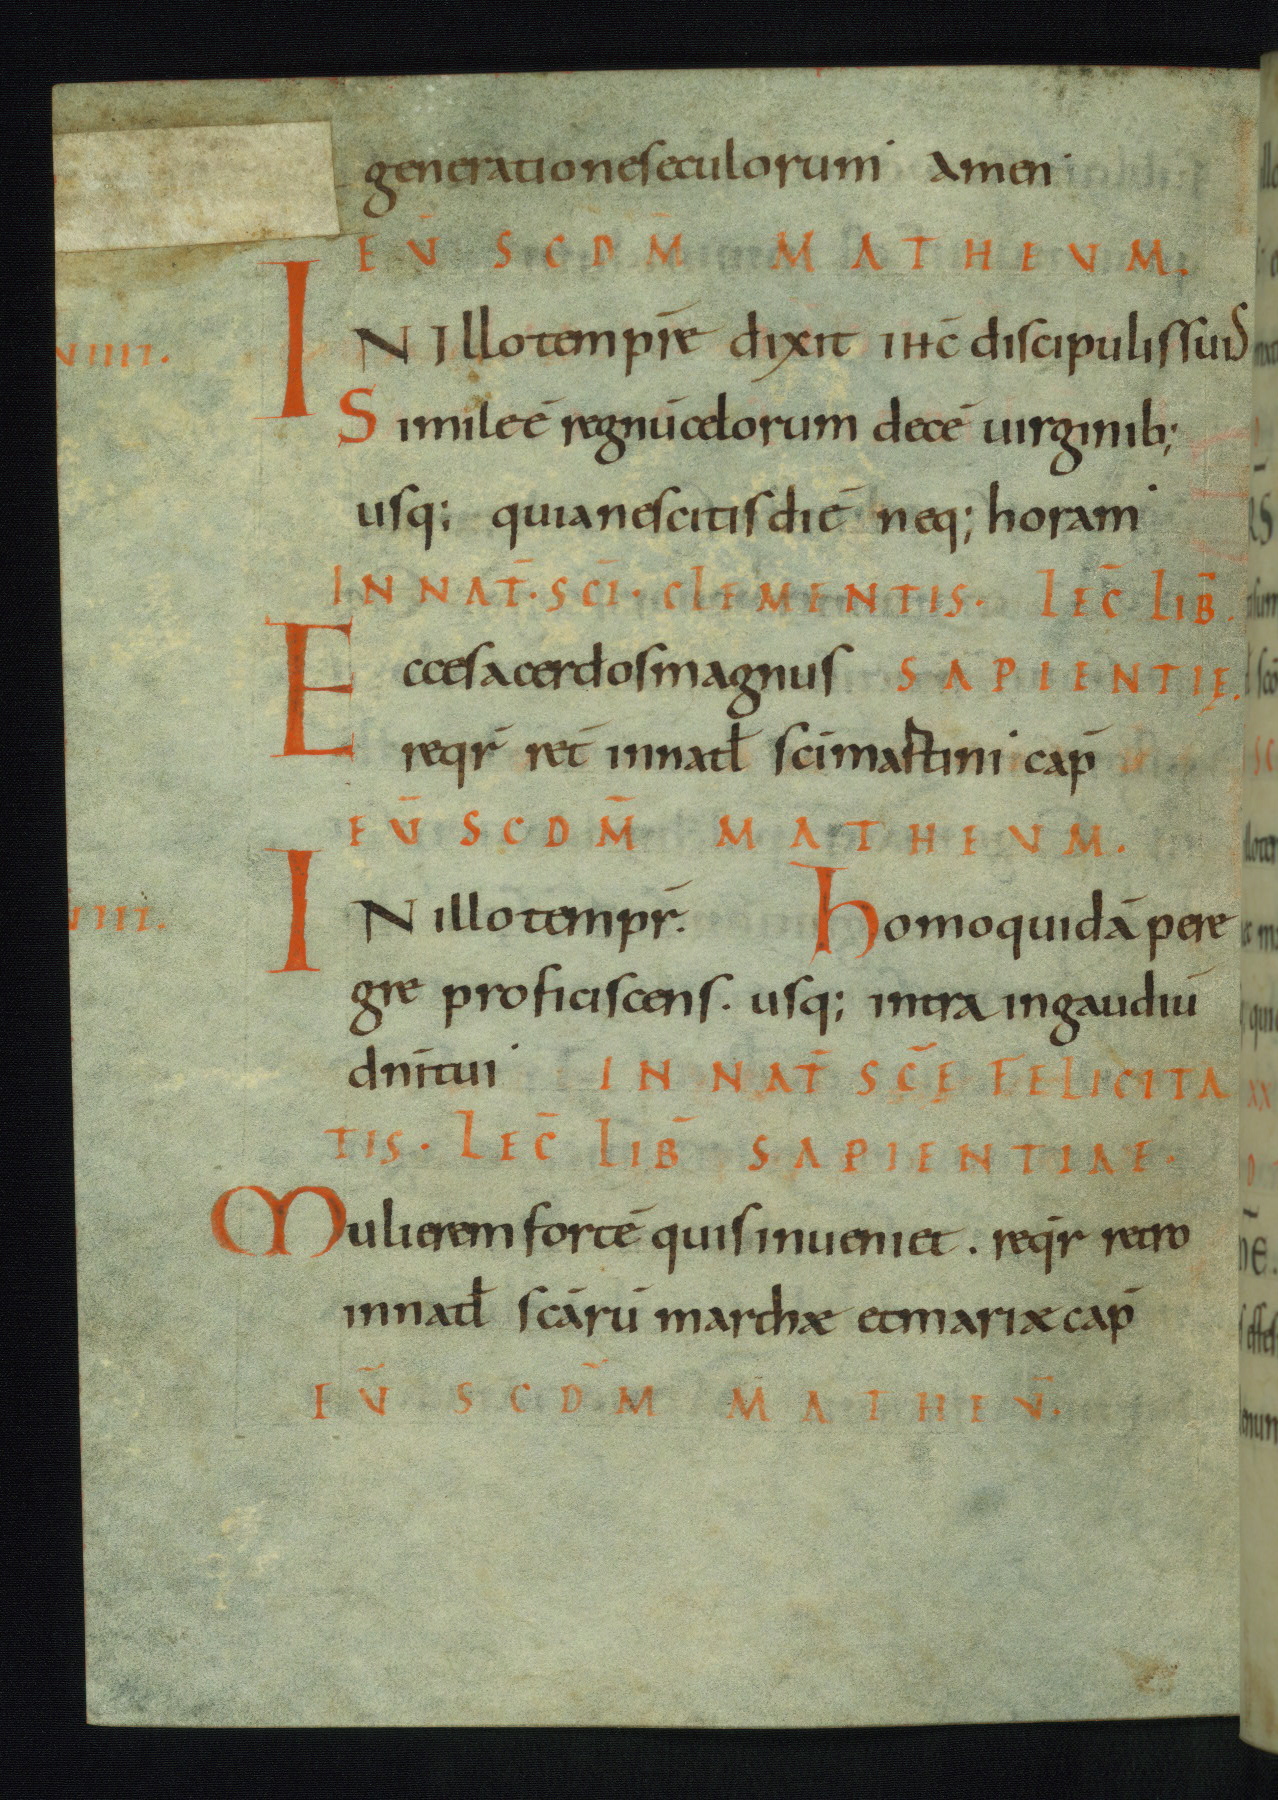 generatione seculorum Amen
EŪ SCD̄M̄ MATHEUM.
VIIII.
IN Illo tempr̄e dixit ihc̄ discipulis suis
Simile ē regnū celorum decē uirginib;
usq; quia nescitis diē neq; horam
IN NAT̄. SC̄I. CLEMENTIS. LEC̄ LIB̄.
Ecce sacerdos magnus SAPIENTIĘ.
reqr̄ ret̄ in natƚ sc̄i martini cap̄
EŪ SCDM̄ MATHEUM.
VIIII.
IN illo tempr̄. Homo quidā pere
gre proficiscens. usq; intra in gaudiū
dn̄i tui IN NAT̄ SC̄E FELICITA
TIS. LEC̄ LIB̄ SAPIENTIAE.
Mulierem fortē quis inueniet. reqr̄ retro
in natƚ scārū marthæ et mariæ cap̄
EŪ SCD̄M MATHEŪ.